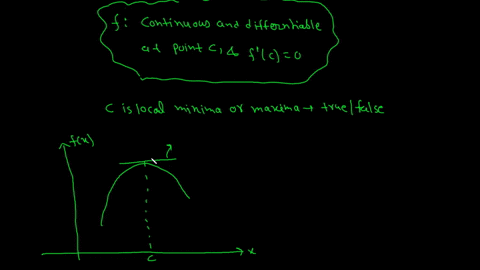 f: Continuous and differntiable
at point c, & f'(c)=0
C is local minima or maxima → true/false
f(x)
x
c